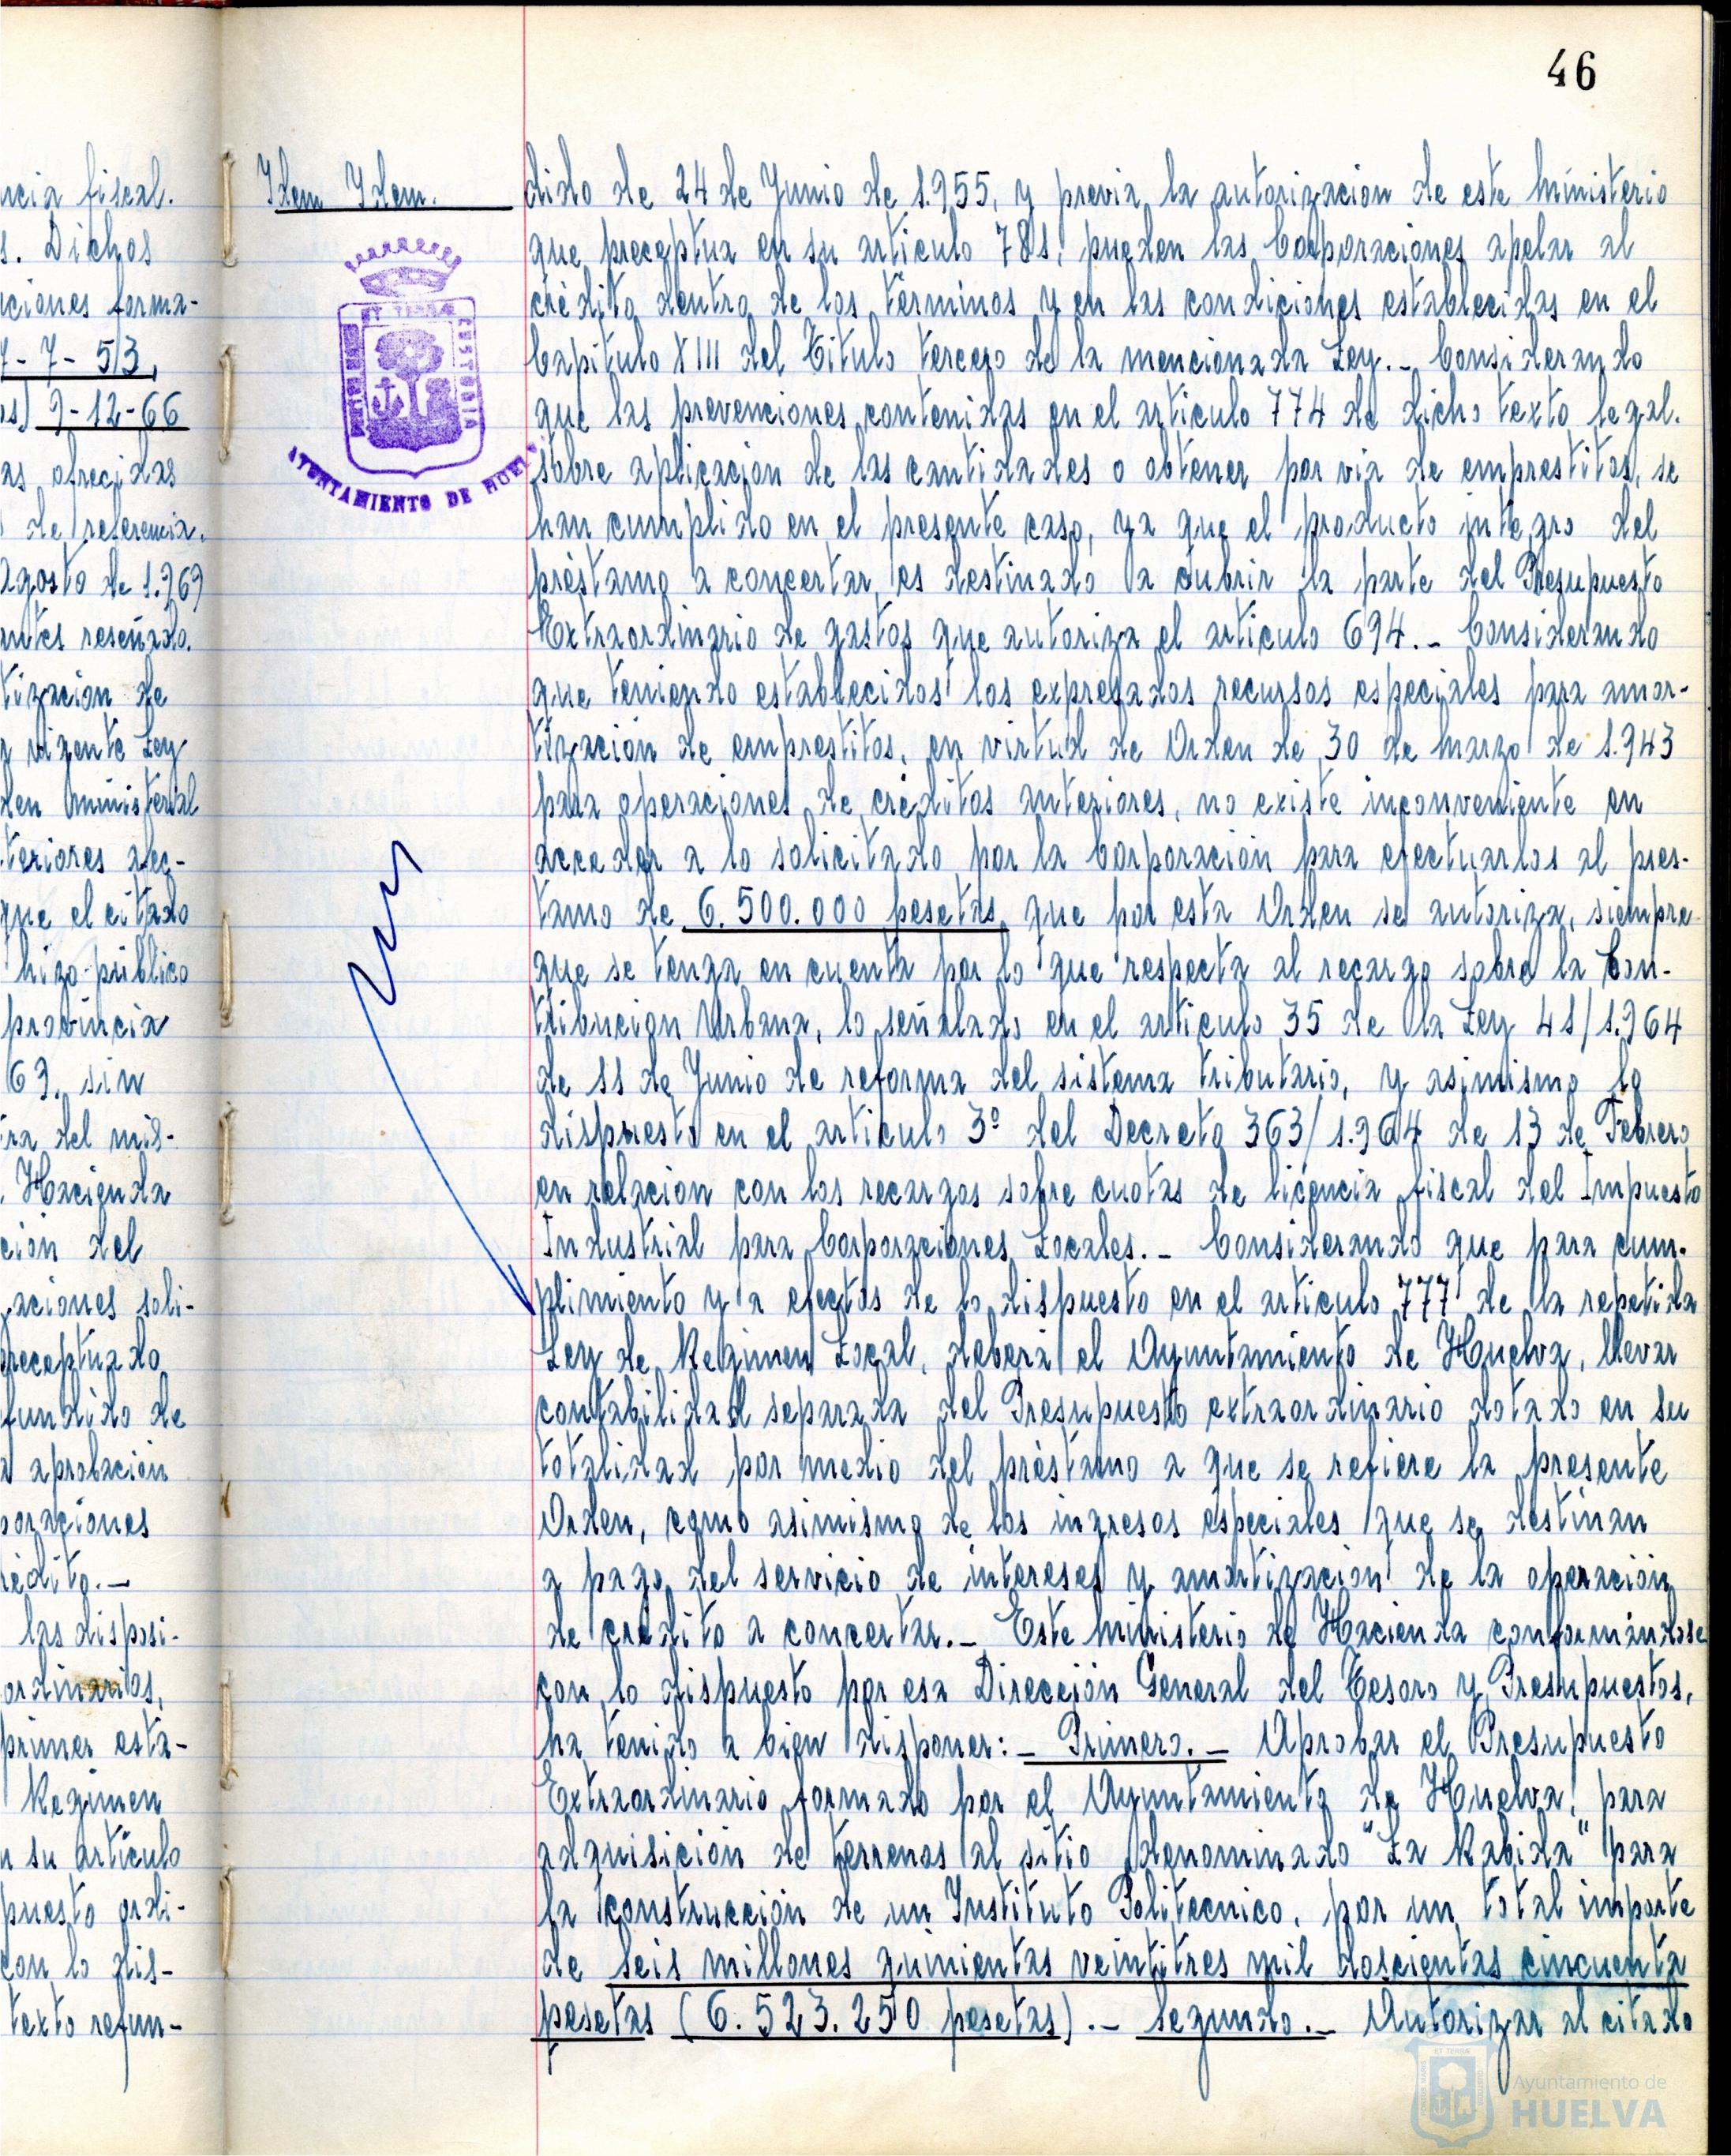 46
ncia fiscal.
s. Dichos
ciones forma-
7-7-53,
os) 9-12-66
as ofrecidas
de referencia.
agosto de 1.969
antes reseñado.
tización de
y vigente Ley
den ministerial
teriores afec-
que el citado
hizo público
provincia
63, sin
ra del mis-
. Hacienda
ción del
aciones soli-
preceptuado
fundido de
a aprobación
poraciones
rédito.-
las disposi-
ordinarios,
primer esta-
Regimen
n su artículo
puesto ordi-
con lo dis-
texto refun-
Idem Idem.
ET TERRÆ
CUSTODIA
AYUNTAMIENTO DE HUELVA
dido de 24 de Junio de 1.955, y previa la autorizacion de este Ministerio
que preceptua en su articulo 781, pueden las Corporaciones apelar al
crédito dentro de los términos y en las condiciones establecidas en el
Capítulo XIII del Titulo tercero de la mencionada Ley.- Considerando
que las prevenciones contenidas en el articulo 774 de dicho texto legal.
sobre aplicacion de las cantidades o obtener por via de emprestitos, se
han cumplido en el presente caso, ya que el producto integro del
préstamo a concertar es destinado a cubrir la parte del Presupuesto
Extraordinario de gastos que autoriza el articulo 694.- Considerando
que teniendo establecidos los expresados recursos especiales para amor-
tización de emprestitos, en virtud de Orden de 30 de Marzo de 1.943
para operaciones de créditos anteriores, no existe inconveniente en
acceder a lo solicitado por la Corporación para efectuarlos al pres-
tamo de 6.500.000 pesetas, que por esta Orden se autoriza, siempre
que se tenga en cuenta por lo que respecta al recargo sobre la Con-
tribucion Urbana, lo señalado en el artículo 35 de la Ley 41/1.964
de 11 de Junio de reforma del sistema tributario, y asimismo lo
dispuesto en el articulo 3º del Decreto 363/1.964 de 13 de Febrero
en relacion con los recargos sobre cuotas de licencia fiscal del Impuesto
Industrial para Corporaciones Locales.- Considerando que para cum-
plimiento y a efectos de lo dispuesto en el articulo 777 de la repetida
Ley de Regimen Local, deberá el Ayuntamiento de Huelva, llevar
contabilidad separada del Presupuesto extraordinario dotado en su
totalidad por medio del préstamo a que se refiere la presente
Orden, como asimismo de los ingresos especiales que se destinan
a pago del servicio de intereses y amortizacion de la operación
de crédito a concertar.- Este Ministerio de Hacienda conformándose
con lo dispuesto por esa Dirección General del Tesoro y Presupuestos,
ha tenido a bien disponer:- Primero.- Aprobar el Presupuesto
Extraordinario formado por el Ayuntamiento de Huelva, para
adquisición de terrenos al sitio denominado "La Rabida" para
la construcción de un Instituto Politecnico, por un total importe
de seis millones quinientas veintitres mil doscientas cincuenta
pesetas (6.523.250 pesetas).- Segundo.- Autorizar al citado
Ayuntamiento de
HUELVA